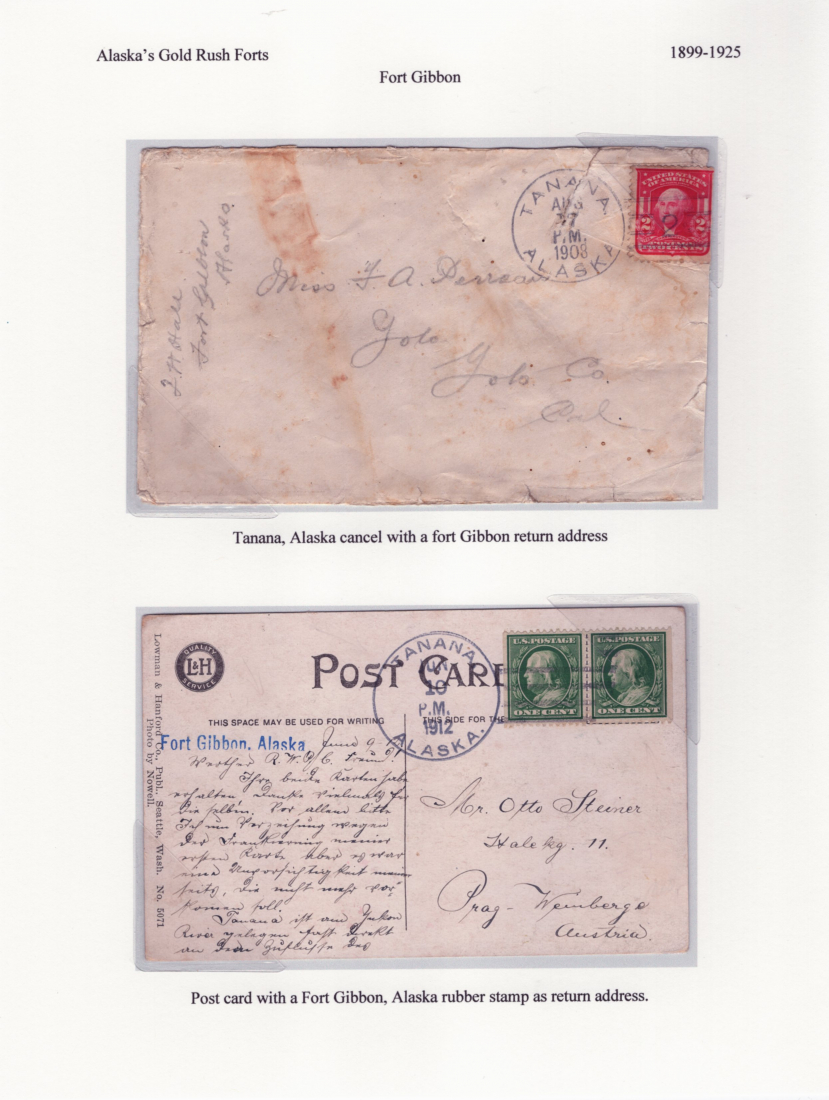 Alaska's Gold Rush Forts
1899-1925
Fort Gibbon
TANANA
AUG
27
P.M.
1908
ALASKA
UNITED STATES
OF AMERICA
2 2
POSTAGE
TWO CENTS
Hall
Fort Gibbon
Alaska
Miss F. A.
Yolo
Yolo Co.
Cal
Tanana, Alaska cancel with a fort Gibbon return address
QUALITY
L&H
SERVICE
POST CARD
TANANA
JUN
10
P.M.
1912
ALASKA.
U.S. POSTAGE
ONE CENT
U.S. POSTAGE
ONE CENT
THIS SPACE MAY BE USED FOR WRITING
THIS SIDE FOR THE
Fort Gibbon, Alaska
June 9-
Werther R.W.
Ihre beide Karten habe
erhalten Danke vielmals
die selbin. Vor allem bitte
Ich um Verzeihung wegen
der Frankierung meiner
ersten Karte aber es war
eine Unvorsichtigkeit
seits, die nicht mehr vor
komen soll.
Tanana ist am Yukon
River gelegen fast direkt
an dem Zuflusse des
Mr. Otto Steiner
11.
Prag - Weinberge
Austria.
Lowman & Hanford Co., Publ., Seattle, Wash. No. 5071
Photo by Nowell.
Post card with a Fort Gibbon, Alaska rubber stamp as return address.